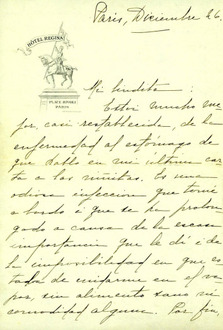 Paris, Diciembre 26.
HÔTEL REGINA
PLACE RIVOLI
PARIS
Mi lindeta:
Estoy mucho me
jor, casi restablecido, de la
enfermedad al estómago de
que hablo en mi última car
ta a las niñitas. Es una
odiosa infección que tomé
a bordo i que se ha prolon
gado a causa de la escasa
importancia que le dí i de
la imposibilidad en que es
taba de cuidarme en el va
por, sin alimento sano ni
comodidad alguna. Por